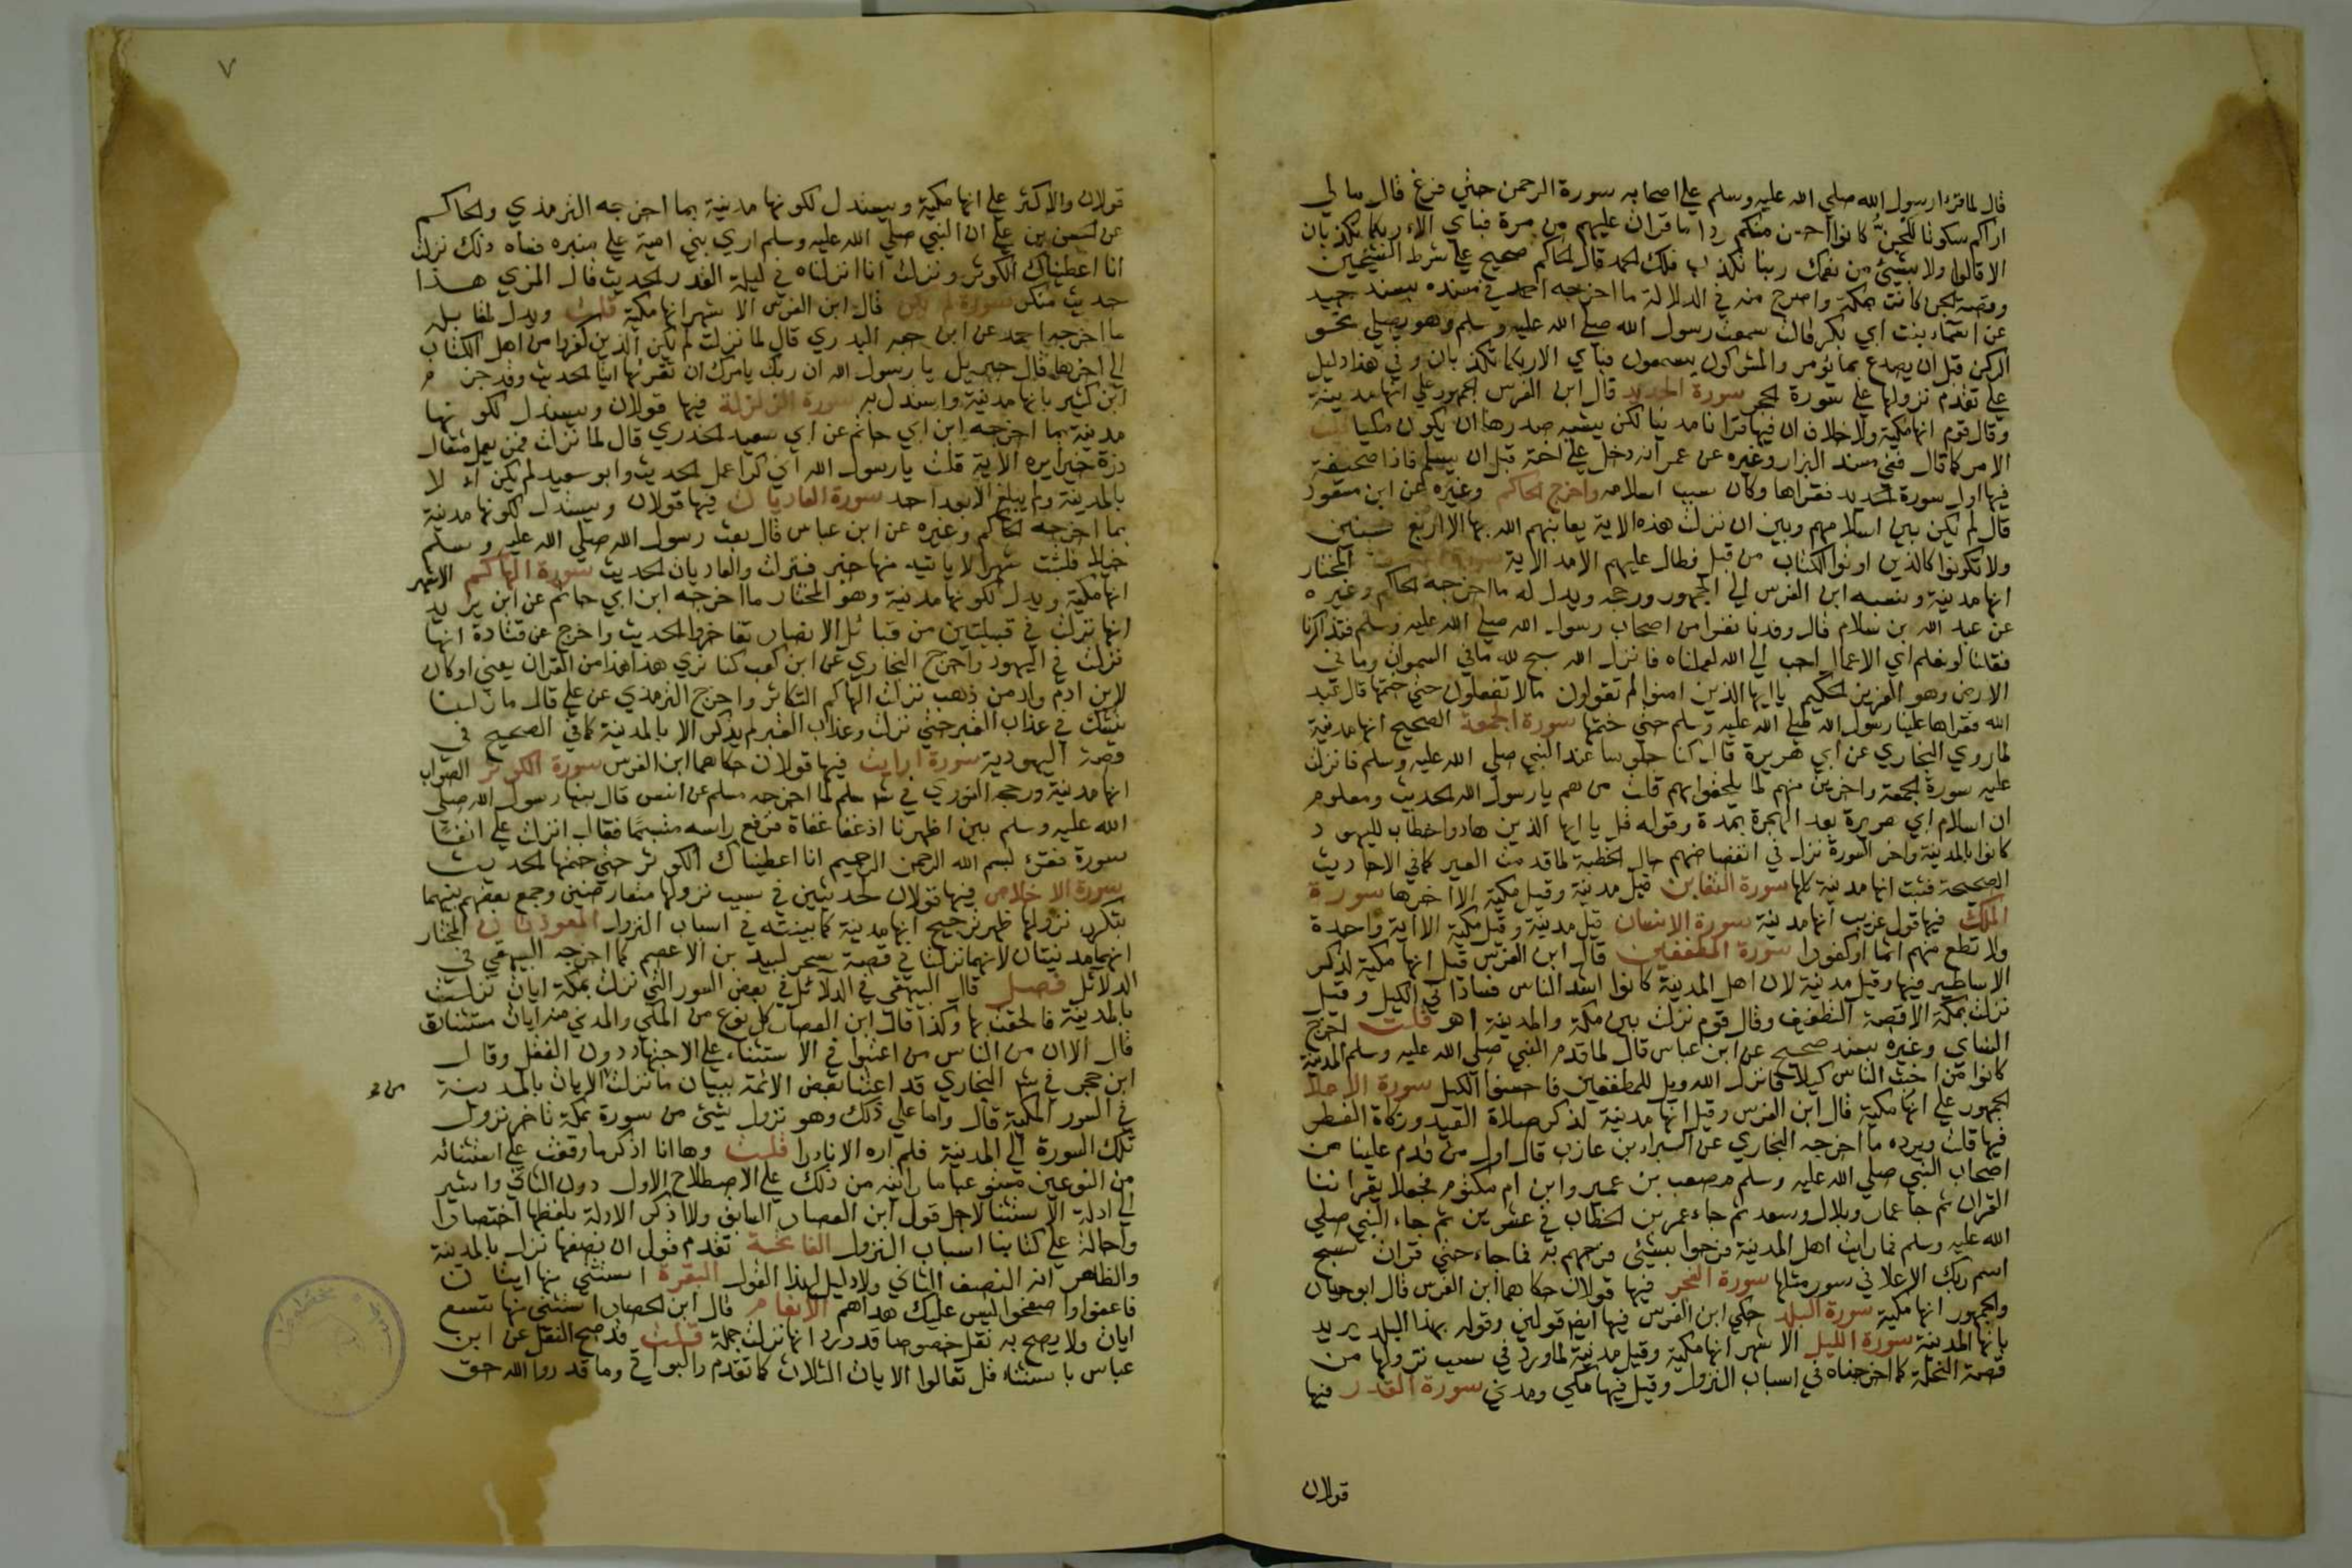 قال لما قرا رسول الله صلي الله عليه وسلم علي اصحابه سورة الرحمن حتي فرغ قال ما لي
اراكم سكوتا للجن كانوا احسن منكم ردا ما قرات عليهم من مرة فباي الاء ربكما تكذبان
الا قالوا ولا بشيئ من نعمك ربنا نكذب فلك الحمد قال الحاكم صحيح علي شرط الشيخين
وقصة الجن كانت بمكة واصرح منه في الدلالة ما اخرجه احمد في مسنده بسند جيد
عن اسماء بنت ابي بكر قالت سمعت رسول الله صلي الله عليه وسلم وهو يصلي نحو
الركن قبل ان يصدع بما يؤمر والمشركون يسمعون فباي الا ربكما تكذبان وفي هذا دليل
علي تقدم نزولها علي سورة الحجر سورة الحديد قال ابن الفرس الجمهور علي انها مدينة
وقال قوم انها مكية ولا خلاف ان فيها قرانا مدنيا لكن يشبه صدرها ان يكون مكيا قلت
الامر كما قال ففي مسند البزار وغيره عن عمر انه دخل علي اخته قبل ان يسلم فاذا صحيفة
فيها اول سورة الحديد فقراها وكان سبب اسلامه واخرج الحاكم وغيره عن ابن مسعود
قال لم يكن بين اسلامهم وبين ان نزلت هذه الاية يعاتبهم الله بها الا اربع سنين
ولا تكونوا كالذين اوتوا الكتاب من قبل فطال عليهم الامد الاية المختار
انها مدنية ونسبه ابن الفرس الي الجمهور ورجحه ويدل له ما اخرجه الحاكم وغيره
عن عبد الله بن سلام قال وفدنا نفرا من اصحاب رسول الله صلي الله عليه وسلم فتذاكرنا
فقلنا لو نعلم اي الاعمال احب الي الله لعملناه فانزل الله سبح لله ما في السموات وما في
الارض وهو العزيز الحكيم يا ايها الذين امنوا لم تقولون مالا تفعلون حتي ختمها قال عبد
الله فقراها علينا رسول الله صلي الله عليه وسلم حتي ختمها سورة الجمعة الصحيح انها مدنية
لما روي البخاري عن ابي هريرة قال كنا جلوسا عند النبي صلي الله عليه وسلم فانزلت
عليه سورة الجمعة واخرين منهم لما يلحقوا بهم قلت من هم يا رسول الله الحديث ومعلوم
ان اسلام ابي هريرة بعد الهجرة بمدة وقوله قل يا ايها الذين هادوا خطاب لليهود
كانوا بالمدينة واخر السورة نزل في انفضاضهم حال الخطبة لما قدمت العير كما في الاحاديث
الصحيحة فثبت انها مدنية كلها سورة التغابن قيل مدنية وقيل مكية الا اخرها سورة
الملك فيها قول غريب انها مدنية سورة الانسان قيل مدنية وقيل مكية الا اية واحدة
ولا تطع منهم اثما او كفورا سورة المطففين قال ابن الفرس قيل انها مكية لذكر
الاساطير فيها وقيل مدنية لان اهل المدينة كانوا اشد الناس فسادا في الكيل وقيل
نزلت بمكة الا قصة التطفيف وقال قوم نزلت بين مكة والمدينة اهـ قلت اخرج
النساي وغيره بسند صحيح عن ابن عباس قال لما قدم النبي صلي الله عليه وسلم المدينة
كانوا من اخبث الناس كيلا فانزل الله ويل للمطففين فاحسنوا الكيل سورة الاعلا
الجمهور علي انها مكية قال ابن الفرس وقيل انها مدنية لذكر صلاة العيد وزكاة الفطر
فيها قلت ويرده ما اخرجه البخاري عن البراء بن عازب قال اول من قدم علينا من
اصحاب النبي صلي الله عليه وسلم مصعب بن عمير وابن ام مكتوم فجعلا يقراننا
القران ثم جا عمار وبلال وسعد ثم جاء عمر بن الخطاب في عشرين ثم جاء النبي صلي
الله عليه وسلم فما رايت اهل المدينة فرحوا بشيئ فرحهم به فما جاء حتي قرات سبح
اسم ربك الاعلا في سور مثلها سورة الفجر فيها قولان حكاهما ابن الفرس قال ابو حيان
والجمهور انها مكية سورة البلد حكي ابن الفرس فيها ايضا قولين وقوله بهذا البلد يريد
بانها المدينة سورة الليل الاشهر انها مكية وقيل مدنية لما ورد في سبب نزولها من
قصة النخلة كما اخرجناه في اسباب النزول وقيل فيها مكي ومدني سورة القدر فيها
قولان
٧
قولان والاكثر علي انها مكية ويستدل لكونها مدنية بما اخرجه الترمذي والحاكم
عن الحسن بن علي ان النبي صلي الله عليه وسلم اري بني امية علي منبره فساه ذلك نزلت
انا اعطيناك الكوثر ونزلت انا انزلناه في ليلة القدر الحديث قال المزي هذا
حديث منكر سورة لم يكن قال ابن الفرس الاشهر انها مكية قلت ويدل لمقابله
ما اخرجه احمد عن ابن حبه البدري قال لما نزلت لم يكن الذين كفروا من اهل الكتاب
الي اخرها قال جبريل يا رسول الله ان ربك يامرك ان تقرئها ابيا الحديث وقد جزم
ابن كثير بانها مدنية واستدل به سورة الزلزلة فيها قولان ويستدل لكونها
مدنية بما اخرجه ابن ابي حاتم عن ابي سعيد الخدري قال لما نزلت فمن يعمل مثقال
ذرة خيرا يره الاية قلت يا رسول الله اني لرا عمل الحديث وابو سعيد لم يكن الا
بالمدينة ولم يبلغ الا بعد احد سورة العاديات فيها قولان ويستدل لكونها مدنية
بما اخرجه الحاكم وغيره عن ابن عباس قال بعث رسول الله صلي الله عليه وسلم
خيلا فلبثت شهرا لا ياتيه منها خبر فنزلت والعاديات الحديث سورة الهاكم الاشهر
انها مكية ويدل لكونها مدنية وهو المختار ما اخرجه ابن ابي حاتم عن ابن بريد
انها نزلت في قبيلتين من قبائل الانصار تفاخروا الحديث واخرج عن قتادة انها
نزلت في اليهود واخرج البخاري عن ابن كعب كنا نري هذا هذا من القران يعني لو كان
لابن ادم واد من ذهب نزلت الهاكم التكاثر واخرج الترمذي عن علي قال ما زلنا
نشك في عذاب القبر حتي نزلت وعذاب القبر لم يذكر الا بالمدينة كما في الصحيح في
قصة اليهودية سورة ارايت فيها قولان حكاهما ابن الفرس سورة الكوثر الصواب
انها مدنية ورجحه النوري في شـ مسلم لما اخرجه مسلم عن انس قال بينا رسول الله صلي
الله عليه وسلم بين اظهرنا اذ غفا غفاة فرفع راسه متبسما فقال انزلت علي انفـًا
سورة فقرئ بسم الله الرحمن الرحيم انا اعطيناك الكوثر حتي ختمها الحديث
سورة الاخلاص فيها قولان لحديثين في سبب نزولها متعارضين وجمع بعضهم بينهما
بتكرر نزولها ظهر ترجيح انها مدنية كما بينته في اسباب النزول المعوذتان المختار
انهما مدنيتان لانهما نزلتا في قصة سحر لبيد بن الاعصم كما اخرجه البيهقي في
الدلائل فصل قال البيهقي في الدلائل في بعض السور التي نزلت بمكة ايات نزلت
بالمدينة فالحقت بها وكذا قال ابن الحصار كل نوع من المكي والمدني منه ايات مستثنات
قال الا ان من الناس من اعتمد في الاستثناء علي الاجتهاد دون النقل وقال
ابن حجر في شـ البخاري قد اعتنا بعض الائمة ببيان ما نزلت الايات بالمدينة
في السور المكية قال واما علي ذلك وهو نزول شيئ من سورة بمكة تاخر نزول
تلك السورة الي المدينة فلم اره الا نادرا قلت وها انا اذكر ما وقفت علي استثنائه
من النوعين مستوعبا ما رايته من ذلك علي الاصطلاح الاول دون الثاني واشير
الي ادلة الاستثنا لاجل قول ابن الحصار السابق ولا اذكر الادلة بلفظها اختصارا
واحالة علي كتابنا اسباب النزول الفاتحة تقدم قول ان نصفها نزل بالمدينة
والظاهر انه النصف الثاني ولا دليل لهذا القول البقرة استثني منها ايتان
فاعفوا واصفحوا ليس عليك هداهم الانعام قال ابن الحصار استثني منها تسع
ايات ولا يصح به نقل خصوصا قد ورد انها نزلت جملة قلت قد صح النقل عن ابن
عباس باستثناء قل تعالوا الايات الثلاث كما تقدم والبواقي وما قدروا الله حق